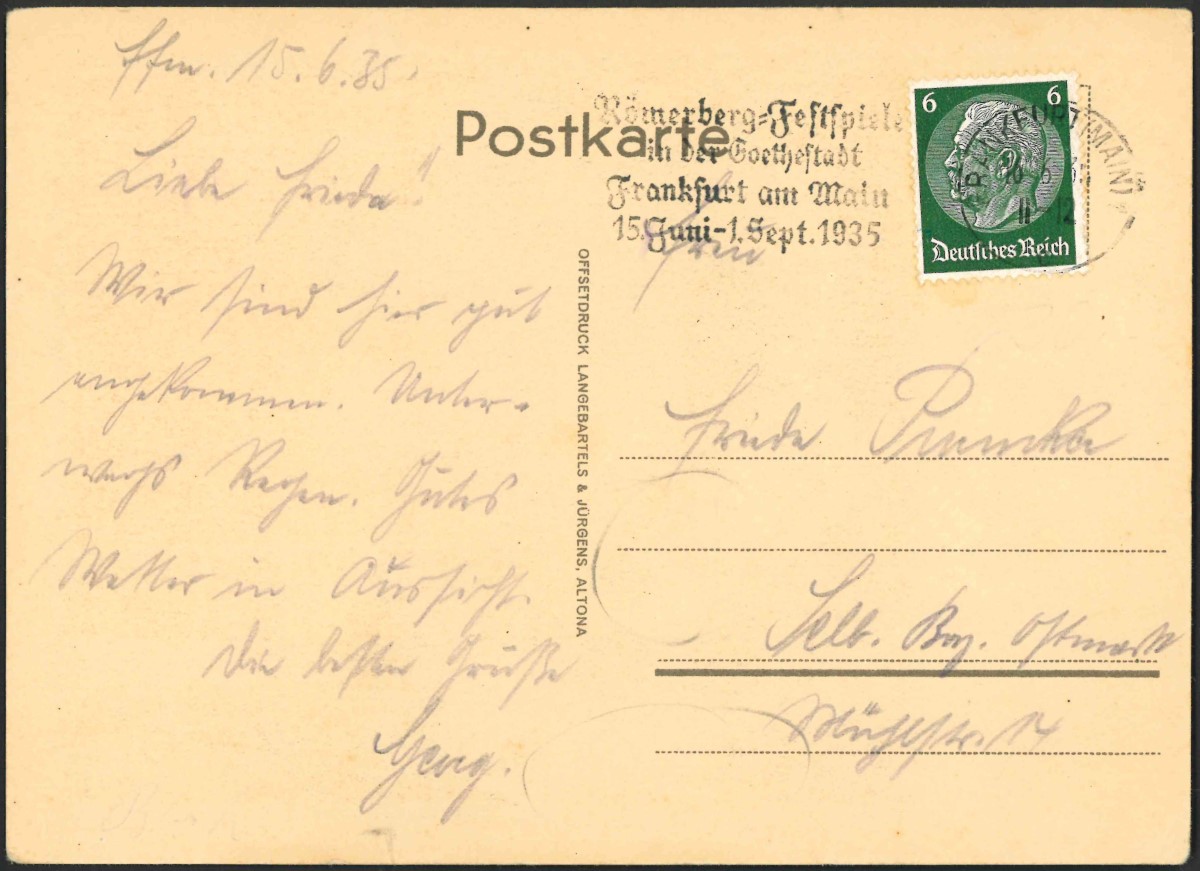 Ffm. 15.6.35.
Liebe Frieda!
Wir sind hier gut
angekommen. Unter-
wegs Regen. Gutes
Wetter in Aussicht.
Die besten Grüße
Georg.
Postkarte
Römerberg=Festspiele
in der Goethestadt
Frankfurt am Main
15. Juni-1. Sept. 1935
6 6
Deutsches Reich
FRANKFURT (MAIN)
OFFSETDRUCK LANGEBARTELS & JÜRGENS, ALTONA
Frau
Frieda
Selb. Bay. Ostmark
Mühlstr. 14